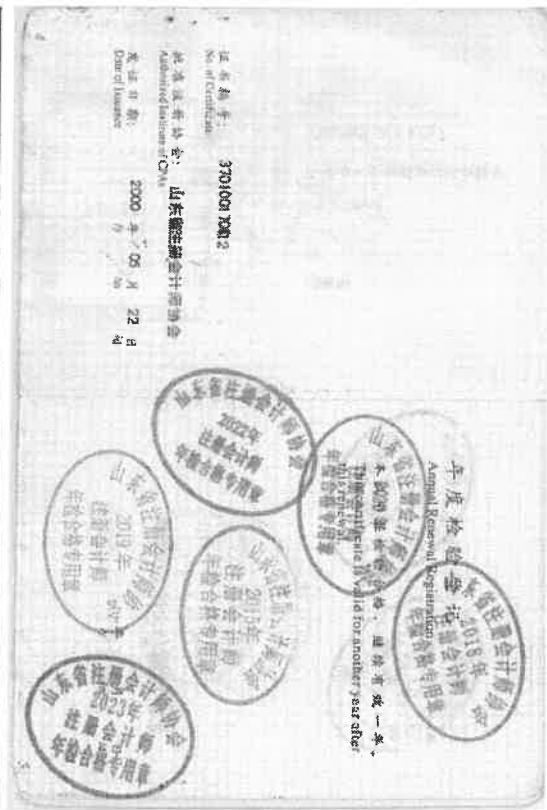 证书编号: 370100170012
No. of Certificate
批准注册协会: 山东省注册会计师协会
Authorized Institute of CPAs
发证日期: 2000 年 05 月 22 日
Date of Issuance
年度检验登记
Annual Renewal Registration
本证书经检验合格,继续有效一年。
This certificate is valid for another year after
this renewal.
山东省注册会计师协会
2018年
注册会计师
年检合格专用章
山东省注册会计师协会
年检合格专用章
山东省注册会计师协会
2022年
注册会计师
年检合格专用章
山东省注册会计师协会
2015年
注册会计师
年检合格专用章
山东省注册会计师协会
2019年
注册会计师
年检合格专用章
山东省注册会计师协会
2023年
注册会计师
年检合格专用章